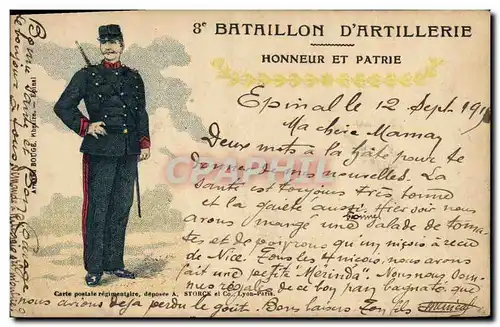 8e BATAILLON D'ARTILLERIE
HONNEUR ET PATRIE
Epinal le 12 Sept 191
Ma chère Maman
Deux mots à la hâte pour te
donner de mes nouvelles. La
santé est toujours très bonne
et la gaieté aussi. Hier soir nous
avons mangé une bonne salade de toma-
tes et de poivrons qu'un niçois a reçu
de Nice. Tous les 4 niçois, nous avons
fait une petite "Merinda". Nous nous som-
mes régalés de ce bon pan bagnato que
nous avions déjà perdu le goût. Bons baisers Ton fils
Carte postale régimentaire, déposée A. STORCK et Co., Lyon-Paris.
BOUGÉ, Épinal
CPA